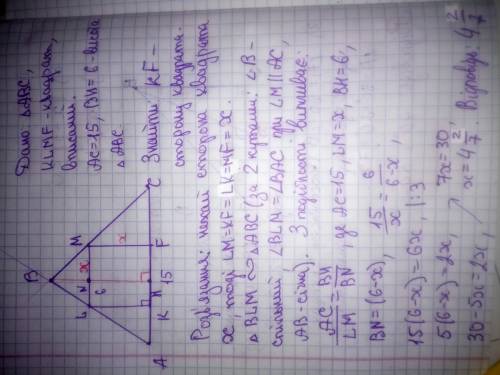 Дано: △ABC,
KLMF - квадрат,
вписаний.
AC=15, BH=6 - висота
△ABC
Знайти KF -
сторону квадрата.
B
L
N
M
x
x
6
A
K
H
15
F
C
Розв'язання: нехай сторона квадрата
x, тоді LM=KF=LK=MF=x.
△BLM ∼ △ABC (за 2 кутами: ∠B -
спільний ∠BLM=∠BAC при LM||AC,
AB - січна). З подібності випливає:
AC/LM = BH/BN, де AC=15, LM=x, BH=6,
BN=(6-x), 15/x = 6/6-x,
15(6-x)=6x, |:3
5(6-x)=2x,
30-5x=2x,
7x=30
x=4 2/7
Відповідь: 4 2/7